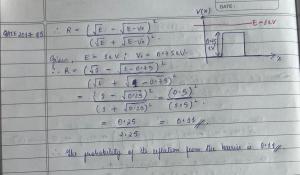 DATE:
GATE 2017
∴ R = (√E - √E-V₀)²
(√E + √E-V₀)²
V(x)
E = 1eV
x
Given, E = 1eV ; V₀ = 0.75eV
∴ R = (√1 - √1-0.75)²
(√1 + √1-0.75)²
= (1 - √0.25)² = (0.5)²
(1 + √0.25)² (1.5)²
= 0.25 = 0.11
2.25
∴ The probability of its reflection from the barrier is 0.11